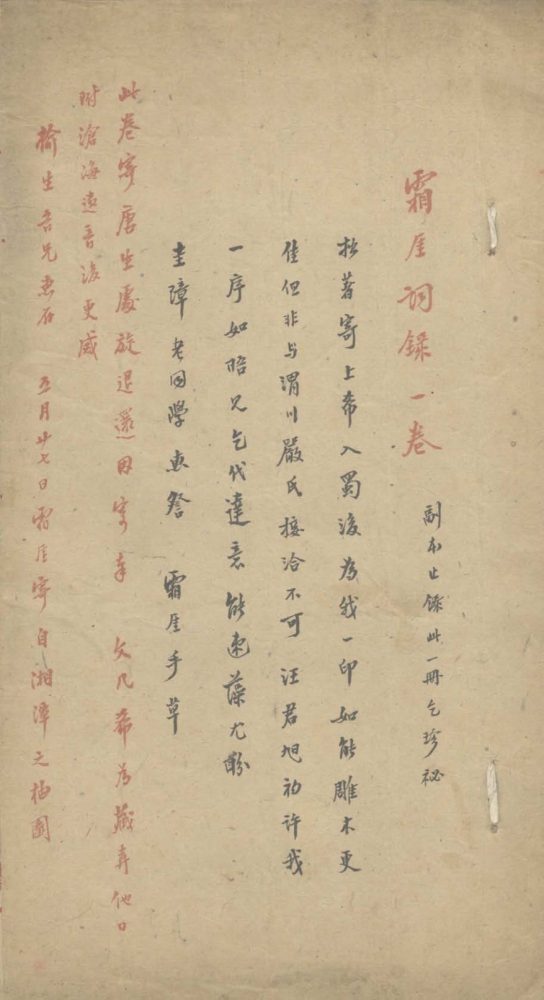 霜厓詞錄一卷
副本止餘此一冊乞珍祕
拙著寄上希入蜀後為我一印如能雕木更
佳但非与渭川嚴氏接洽不可汪君旭初許我
一序如晤兄乞代達意能速藻尤盼
圭璋老同學惠詧 霜厓手草
此卷寄唐生處旋退還因寄奉 文几希為藏弆他日
附滄海遺音後更感
榆生吾兄惠存 五月廿七日霜厓寄自湘潭之柚園